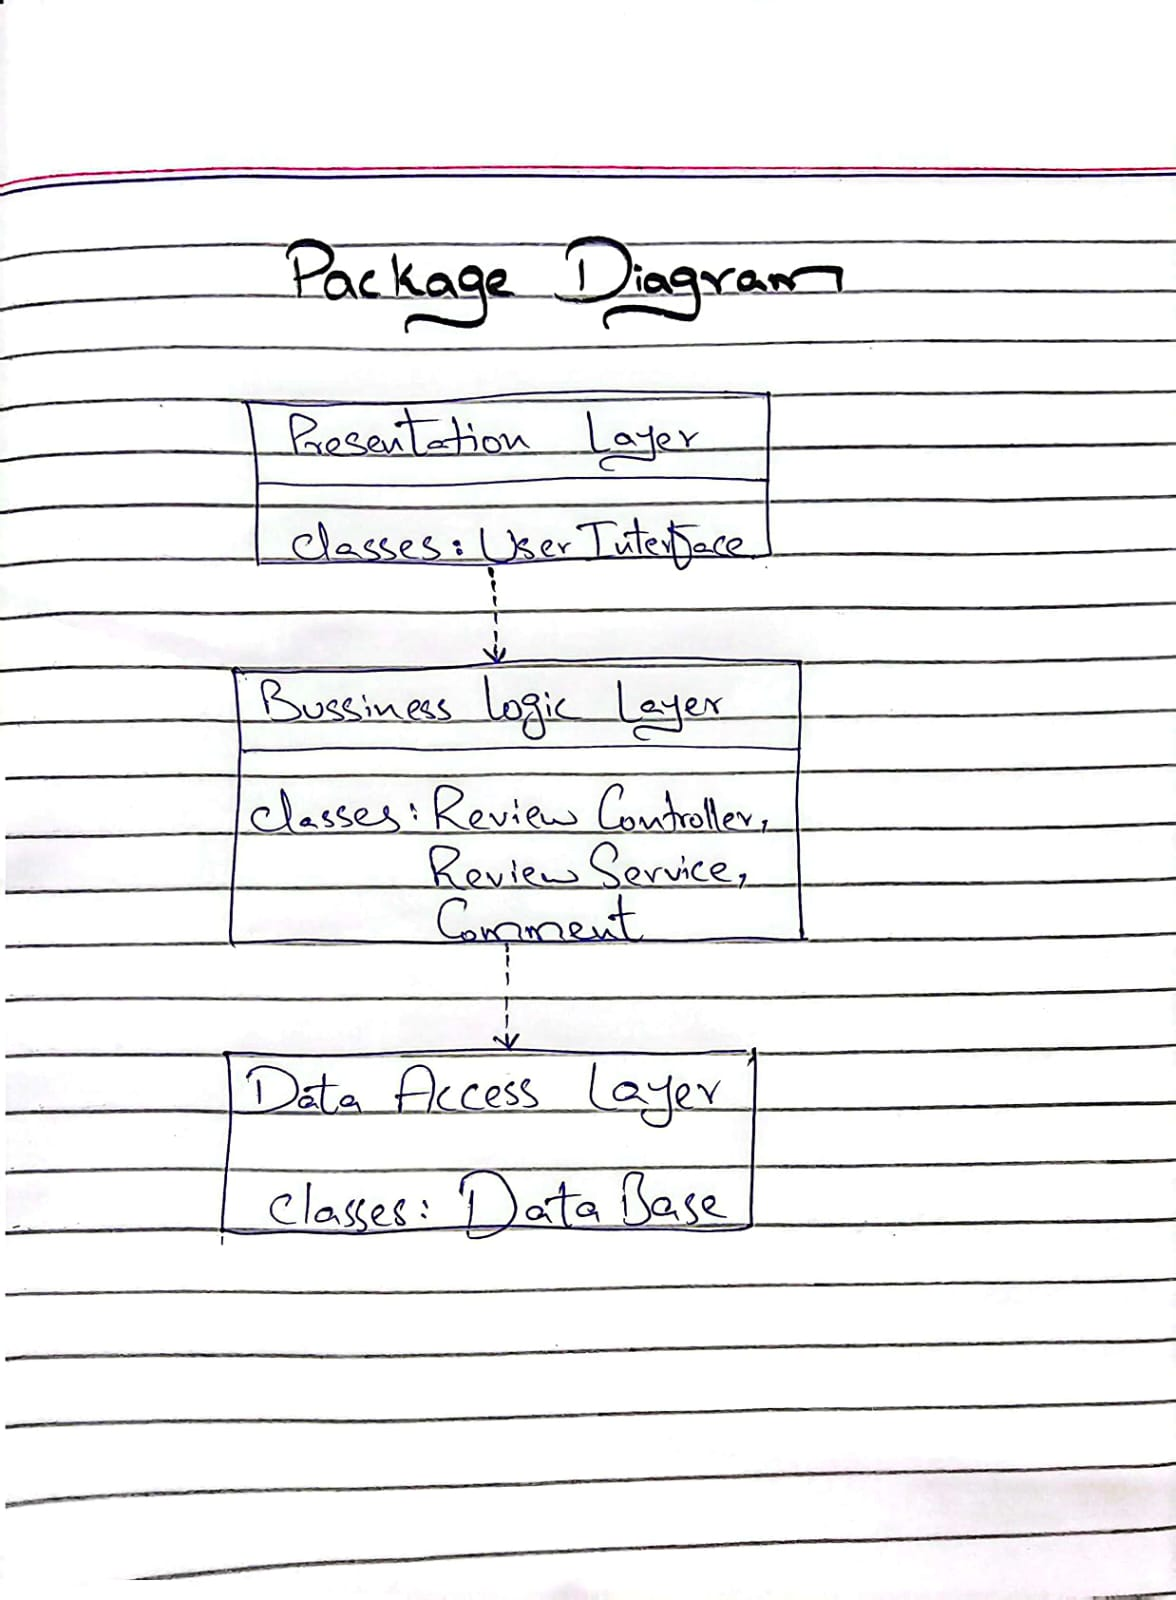 Package Diagram
Presentation Layer
Classes: User Interface
Bussiness Logic Layer
Classes: Review Controller,
Review Service,
Comment
Data Access Layer
Classes: Data Base